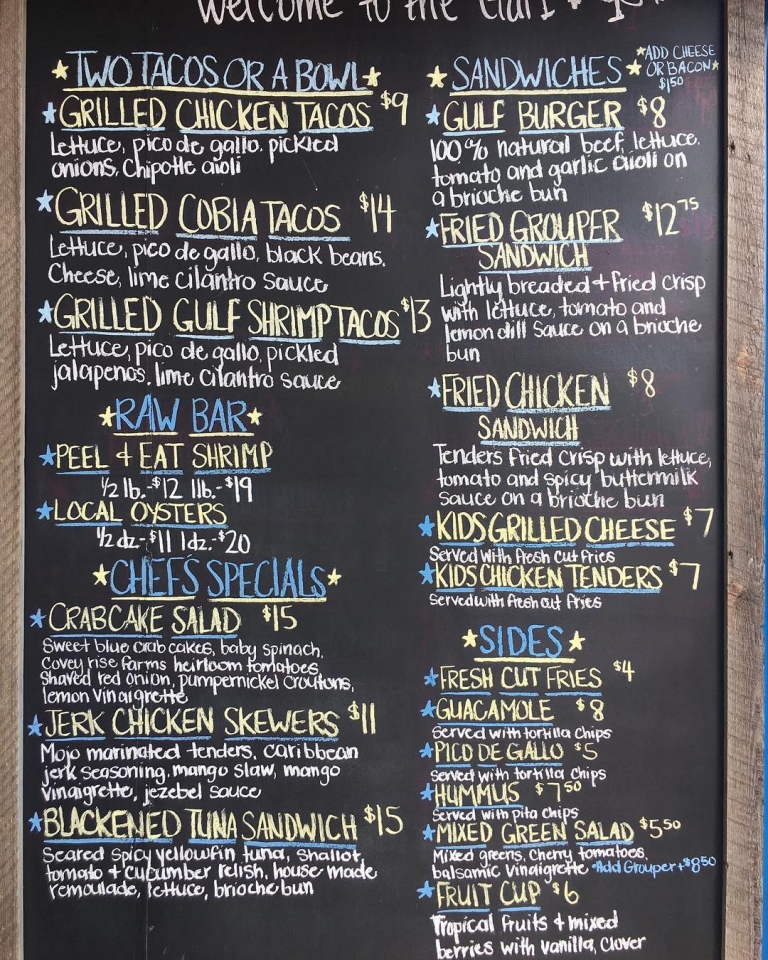 welcome to the
★TWO TACOS OR A BOWL★
★GRILLED CHICKEN TACOS $9
Lettuce, pico de gallo, pickled
onions, Chipotle aioli
★GRILLED COBIA TACOS $14
Lettuce, pico de gallo, black beans,
Cheese, lime cilantro Sauce
★GRILLED GULF SHRIMP TACOS $13
Lettuce, pico de gallo, pickled
jalapenos, lime cilantro sauce
★RAW BAR★
★PEEL & EAT SHRIMP
1/2 lb.-$12 1lb.-$19
★LOCAL OYSTERS
1/2 dz.-$11 1dz.-$20
★CHEF'S SPECIALS★
★CRABCAKE SALAD $15
Sweet blue crab cakes, baby spinach,
Covey rise farms heirloom tomatoes,
Shaved red onion, pumpernickel croutons,
lemon vinaigrette
★JERK CHICKEN SKEWERS $11
Mojo marinated tenders, caribbean
jerk seasoning, mango slaw, mango
vinaigrette, jezebel sauce
★BLACKENED TUNA SANDWICH $15
Seared spicy yellowfin tuna, shallot,
tomato + cucumber relish, house made
remoulade, lettuce, brioche bun
★SANDWICHES★
★ADD CHEESE
OR BACON★
$1.50
★GULF BURGER $8
100% natural beef, lettuce,
tomato and garlic aioli on
a brioche bun
★FRIED GROUPER $12.75
SANDWICH
Lightly breaded + fried crisp
with lettuce, tomato and
lemon dill Sauce on a brioche
bun
★FRIED CHICKEN $8
SANDWICH
Tenders fried crisp with lettuce,
tomato and spicy buttermilk
sauce on a brioche bun
★KIDS GRILLED CHEESE $7
Served with fresh cut fries
★KIDS CHICKEN TENDERS $7
served with fresh cut fries
★SIDES★
★FRESH CUT FRIES $4
★GUACAMOLE $8
Served with tortilla chips
★PICO DE GALLO $5
served with tortilla chips
★HUMMUS $7.50
Served with pita chips
★MIXED GREEN SALAD $5.50
Mixed greens, cherry tomatoes,
balsamic vinaigrette *Add Grouper +$8.50
★FRUIT CUP $6
Tropical fruits & mixed
berries with vanilla, clover